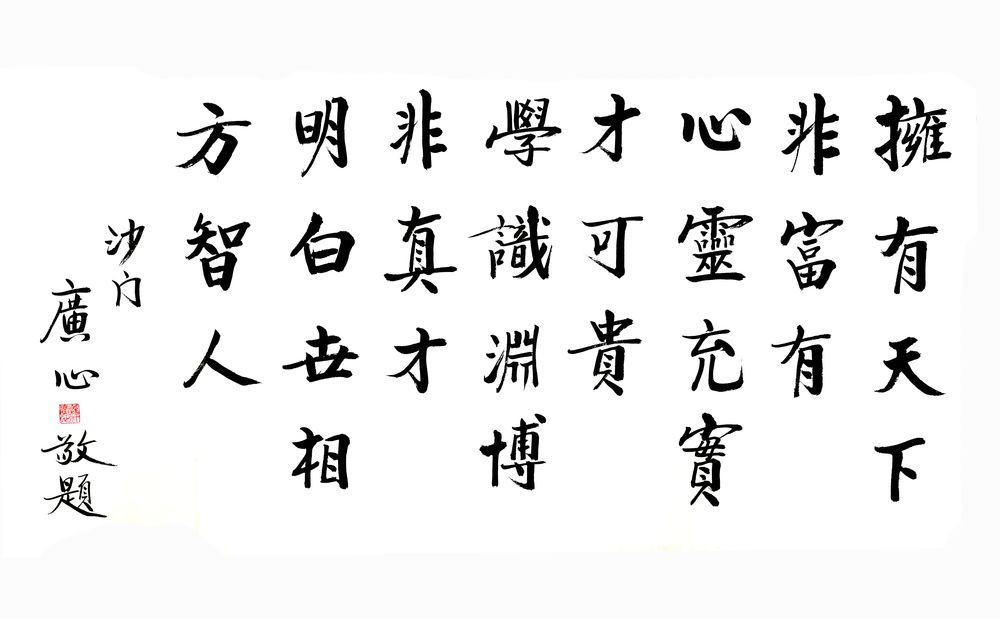 擁有天下
非富有
心靈充實
才可貴
學識淵博
非真才
明白世相
方智人
沙门
廣心
敬題